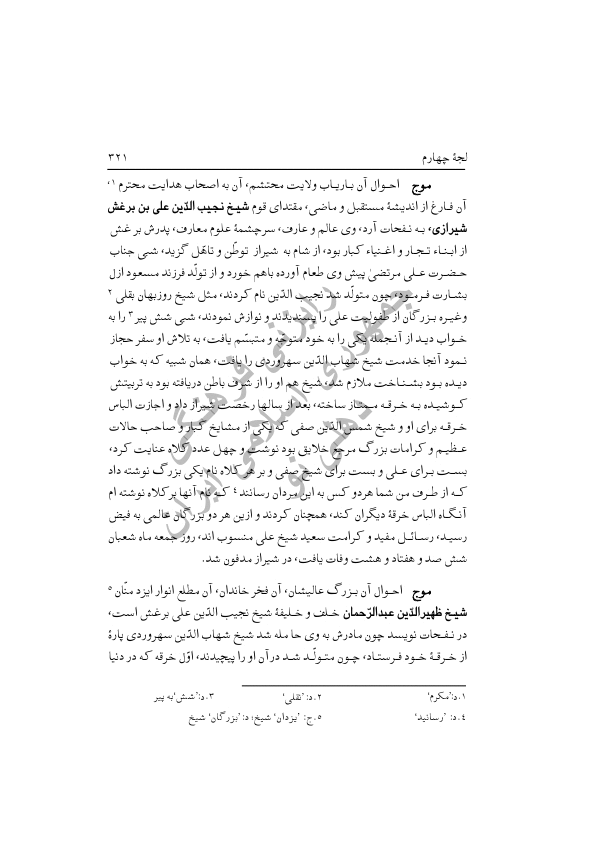 لجهٔ چهارم
۳۲۱
موج احـوال آن بـاریـاب ولایت محتشم، آن به اصحاب هدایت محترم ۱،
آن فـارغ از اندیشهٔ مسـتقبل و ماضی، مقتدای قوم شیـخ نجیب الدّین علی بن برغش
شیرازی، بـه نـفحات آرد، وی عالم و عارف، سرچشمهٔ علوم معارف، پدرش بر غش
از ابـنـاء تـجـار و اغـنـیاء کـبار بود، از شام به شیراز توطّن و تاهّل گزید، شبی جناب
حـضـرت عـلـی مرتضیٰ پیش وی طعام آورده باهم خورد و از تولّد فرزند مسعود ازل
بشـارت فـرمـود، چون متولّد شد نجیب الدّین نام کردند، مثل شیخ روزبهان بقلی ۲
وغیـره بـزرگان از طفولیت علی را پسندیدند و نوازش نمودند، شبی شش پیر ۳ را به
خـواب دیـد از آنـجمله یکی را به خود متوجّه و متبسّم یافت، به تلاش او سفر حجاز
نـمود آنجا خدمت شیخ شهاب الدّین سهروردی را یافت، همان شبیه که به خواب
دیـده بـود بشـنـاخت ملازم شد، شیخ هم او را از شرف باطن دریافته بود به تربیتش
کـوشیـده بـه خـرقـه مـمتـاز ساخته، بعد از سالها رخصت شیراز داد و اجازت الباس
خـرقـه برای او و شیخ شمس الدّین صفی که یکی از مشایخ کبار و صاحب حالات
عـظـیـم و کرامات بزرگ مرجع خلایق بود نوشت و چهل عدد کلاه عنایت کرد،
بسـت بـرای عـلی و بست برای شیخ صفی و بر هر کلاه نام یکی بزرگ نوشته داد
کـه از طـرف من شما هردو کس به این مردان رسانند ۴ کـه نام آنها برکلاه نوشته ام
آنـگـاه الباس خرقهٔ دیگران کند، همچنان کردند و ازین هر دو بزرگان عالمی به فیض
رسیـد، رسـائـل مفید و کرامت سعید شیخ علی منسوب اند، روز جمعه ماه شعبان
شش صد و هفتاد و هشت وفات یافت، در شیراز مدفون شد.
موج احـوال آن بـزرگ عالیشان، آن فخر خاندان، آن مطلع انوار ایزد منّان ۵
شیـخ ظهیرالدّین عبدالرّحمان خـلـف و خـلـیفهٔ شیخ نجیب الدّین علی برغش است،
در نـفـحات نویسد چون مادرش به وی حا مله شد شیخ شهاب الدّین سهروردی پارهٔ
از خـرقـهٔ خـود فـرستـاد، چـون متـولّـد شـد درآن او را پیچیدند، اوّل خرقه که در دنیا
۱.د:'مکرم'
۲.د: 'نقلی'
۳.د:'شش'به پیر
۴.د: 'رسانید'
۵.ج: 'یزدان' شیخ؛ د:'بزرگان' شیخ